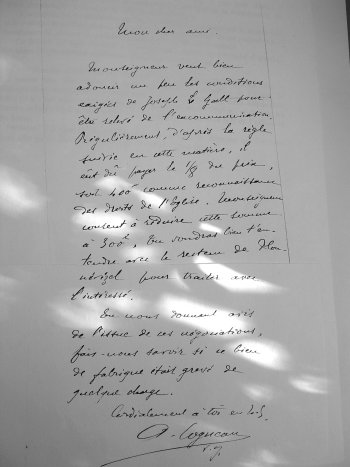 Mon cher ami.
Monseigneur veut bien
adoucir un peu les conditions
exigées de Joseph Le Gall pour
être relevé de l'excommunication.
Régulièrement, d'après la règle
suivie en cette matière, il
eut dû payer le 1/8 du prix,
soit 400f comme reconnaissance
des droits de l'Eglise. Monseigneur
consent à réduire cette somme
à 300f. Tu voudras bien t'en-
tendre avec le recteur de
pour traiter avec
l'intéressé.
En nous donnant avis
de l'issue de ces négociations,
fais-nous savoir si ce bien
de fabrique était grevé de
quelque charge.
Cordialement à toi en N.S.
A. Cogneau
v.g.